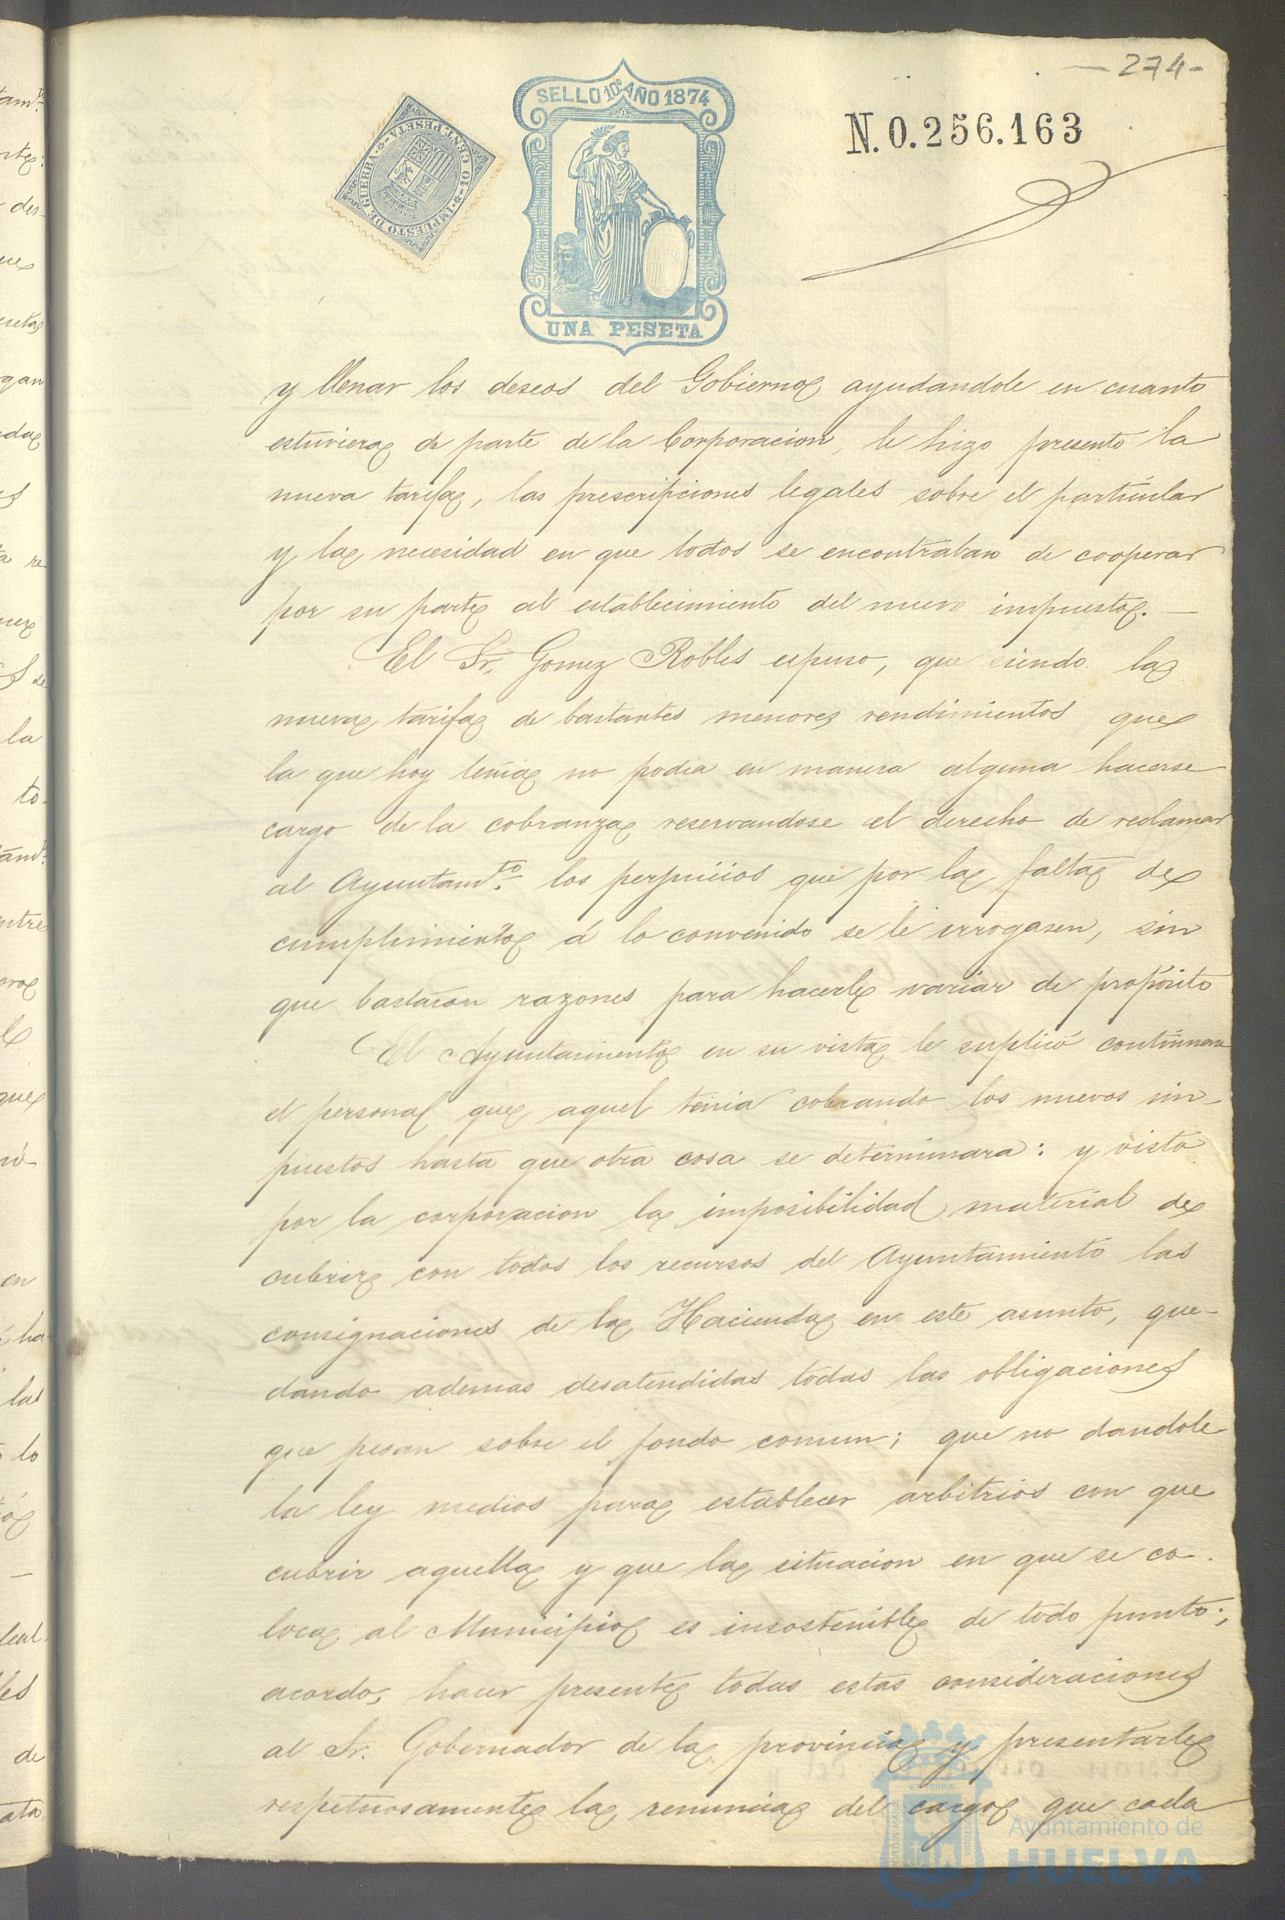 - 274 -
SELLO 10º AÑO 1874
UNA PESETA
IMPUESTO DE GUERRA
10 CENT. PESETA
N. 0.256.163
y llenar los deseos del Gobierno ayudandole en cuanto
estuviera de parte de la Corporacion, le hizo presente la
nueva tarifa, las prescripciones legales sobre el particular
y la necesidad en que todos se encontraban de cooperar
por su parte al establecimiento del nuevo impuesto. —
El Sr. Gomez Robles espuso, que siendo la
nueva tarifa de bastantes menores rendimientos que
la que hoy tenia no podia en manera alguna hacerse
cargo de la cobranza reservandose el derecho de reclamar
al Ayuntamto. los perjuicios que por la falta de
cumplimiento á lo convenido se le irrogasen, sin
que bastaran razones para hacerle variar de propósito
El Ayuntamiento en su vista le suplicó continuara
el personal que aquel tenia cobrando los nuevos im-
puestos hasta que otra cosa se determinara: y visto
por la corporacion la imposibilidad material de
cubrir con todos los recursos del Ayuntamiento las
consignaciones de la Hacienda en este asunto, que-
dando ademas desatendidas todas las obligaciones
que pesan sobre el fondo comun; que no dandole
la ley medios para establecer arbitrios con que
cubrir aquella y que la situacion en que se co-
loca al Municipio es insostenible de todo punto;
acordo, hacer presente todas estas consideraciones
al Sr. Gobernador de la provincia y presentarle
respetuosamente la renuncia del cargo que cada
Ayuntamiento de
HUELVA